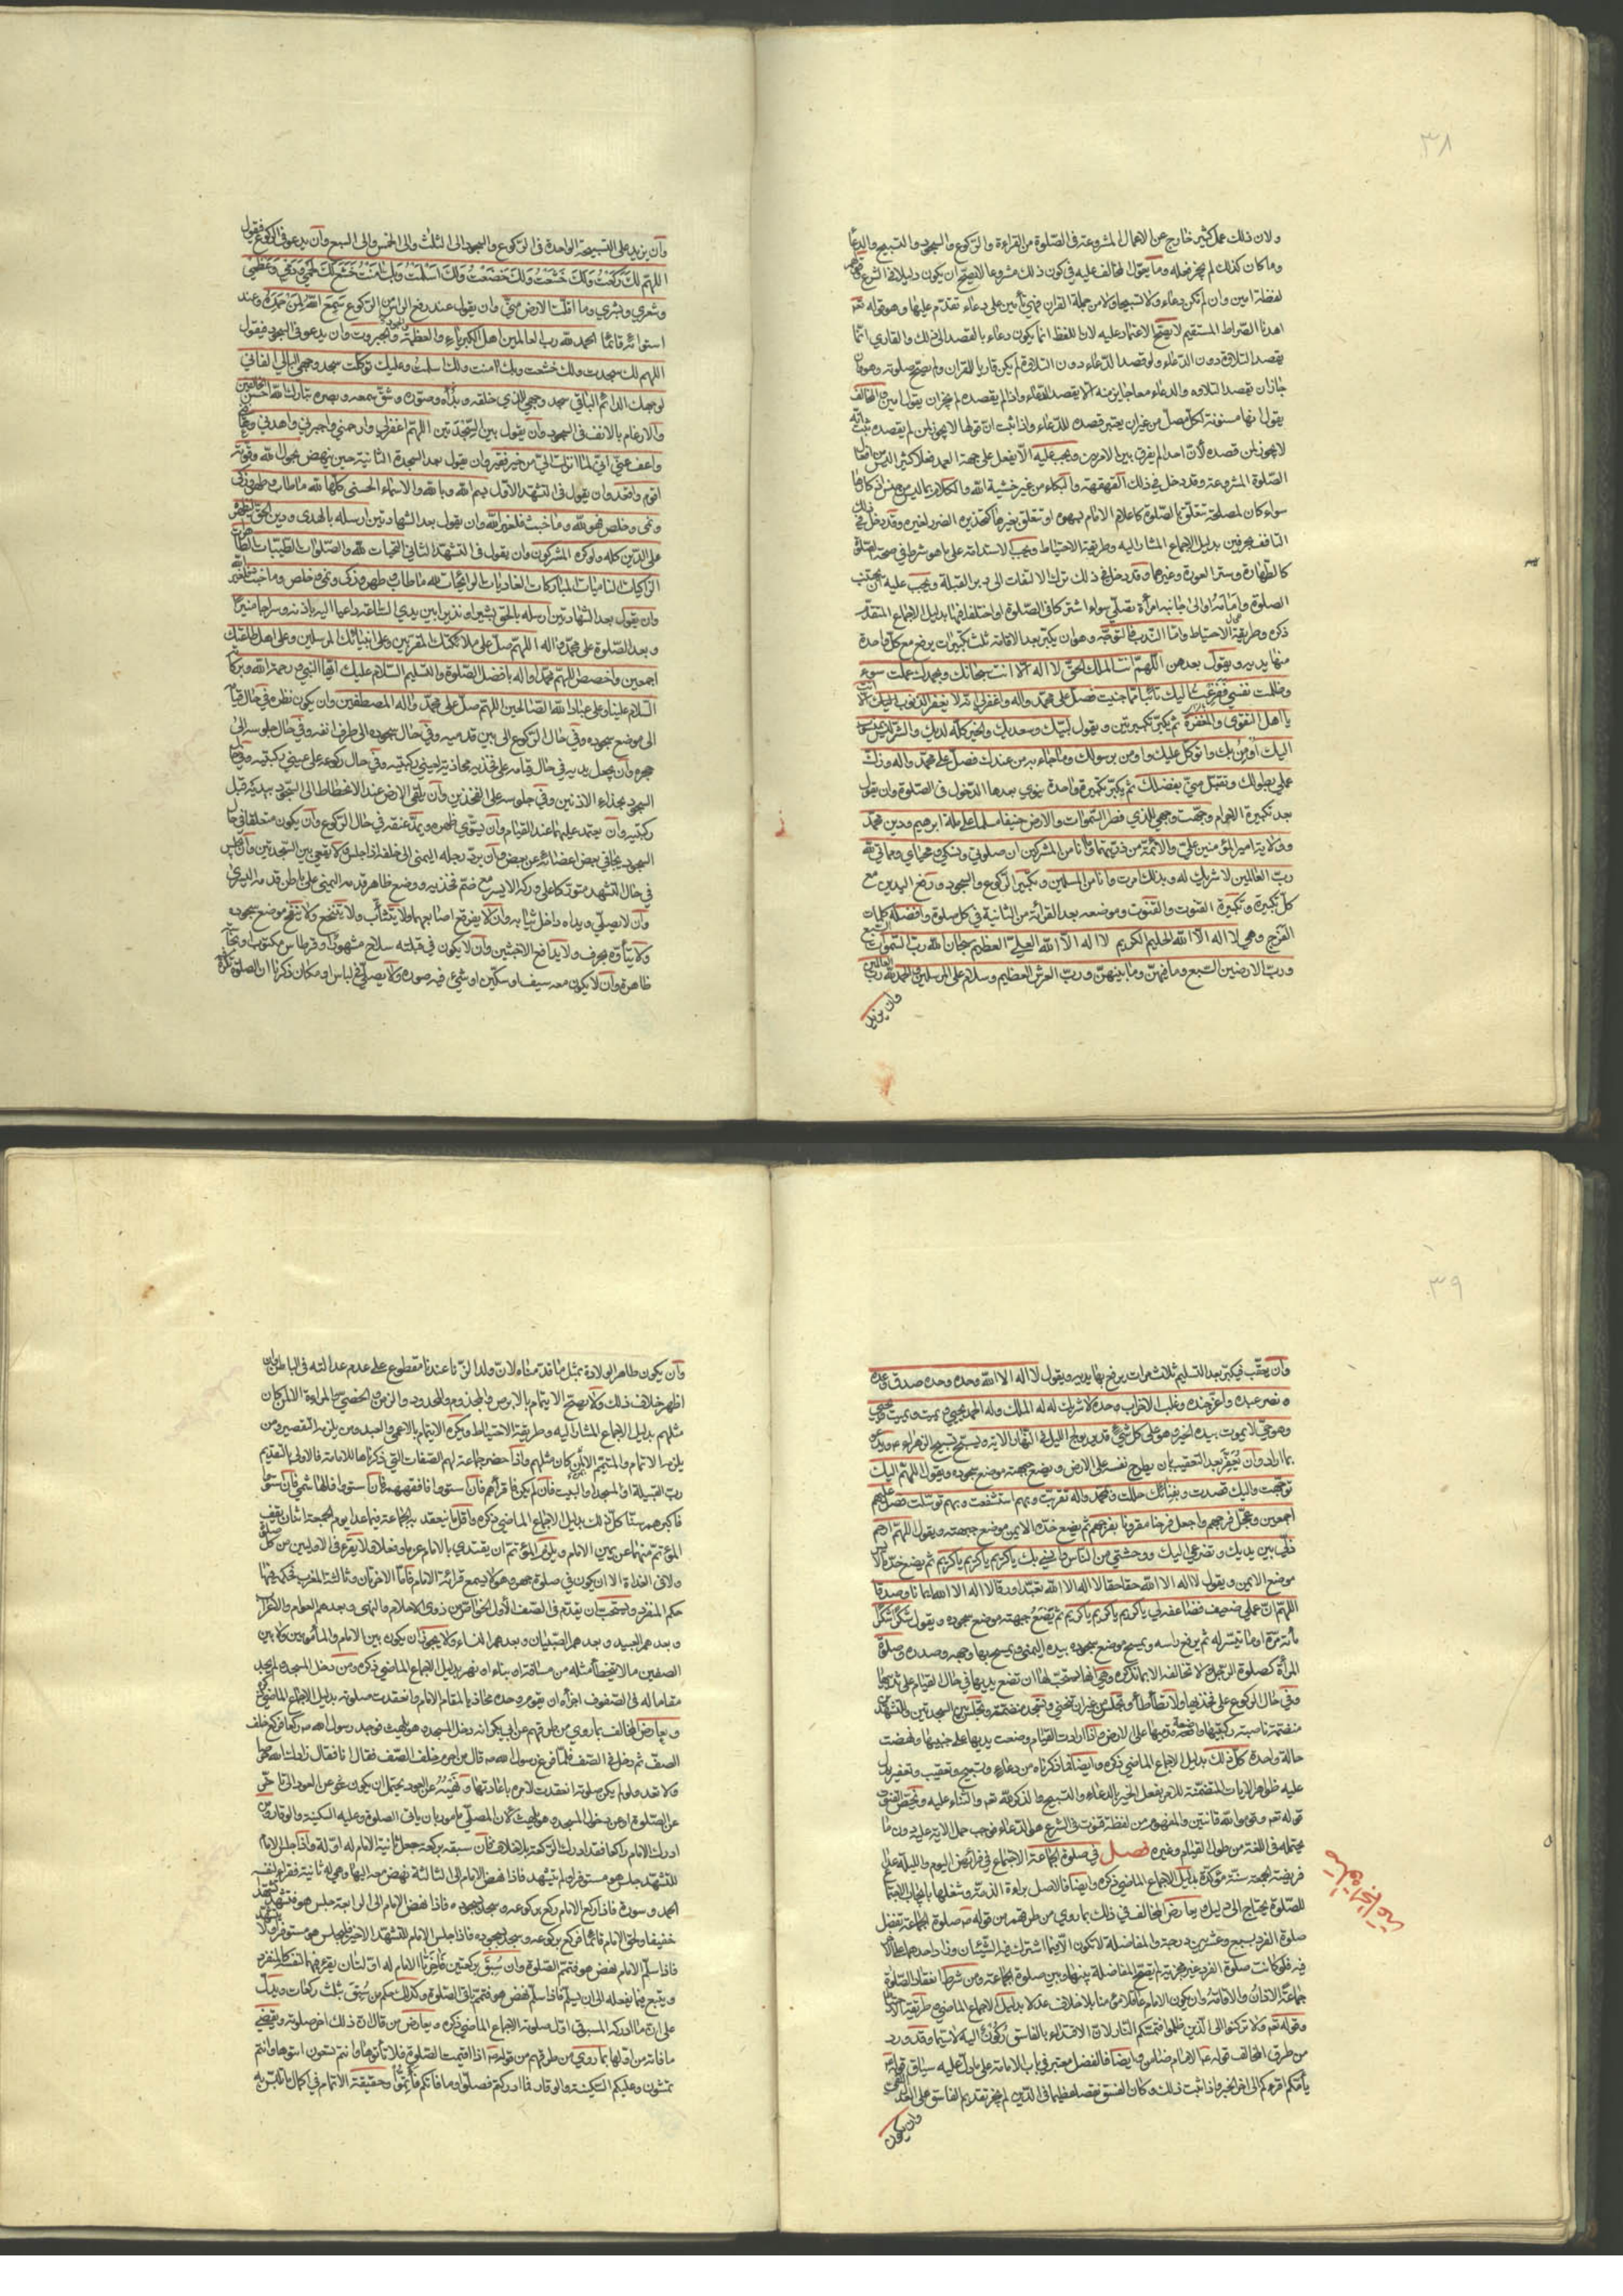 ٣٨
ولان ذلك عمل كثير خارج عن الاعمال المشروعة فى الصّلوة من القراءة والركوع والسجود والتسبيح والدعاء
وما كان كذلك لم يجز فعله وما يقول المخالف عليه فى كون ذلك مشروعا لا يصح ان يكون دليلا فى الشرع
لفظة امين وان لم تكن دعاء ولا تسبيحا ولا من جملة القران فهى تأمين على دعاء تقدم عليها وهو قوله تعـ
اهدنا الصّراط المستقيم لا يصح الاعتماد عليه لان اللفظ انما يكون دعاء بالقصد الى ذلك والقاري انما
يقصد التلاوة دون الدعاء ولو قصد الدعاء دون التلاوة لم يكن قاريا للقران ولم تصح صلوته وهو وان
جاز ان يقصد التلاوه والدعاء معا جاز منه الّا يقصد الدعاء واذا لم يقصده لم يجز ان يقول امين والمخالف
يقول انها مسنونة لكل مصلّ من غير ان يعتبر قصده للدعاء واذا ثبت ان قولها لا يجوز لمن لم يقصده ثبت انه
لا يجوز لمن قصده لأن احدا لم يفرق بين الامرين ويجب عليه الّا يفعل على جهة العمد فعلا كثيرا ليس من افعال
الصّلوة المشروعة وقد دخل فى ذلك القهقهة والبكاء من غير خشية الله والكلام بما ليس من جنس اذكارها
سواء كان لمصلحة تتعلق بالصّلوة كاعلام الامام بسهوه او تتعلق بغيرها كتحذيره الضرر لغيره وقد دخل فى ذلك
التافف بحرفين بدليل الاجماع المشار اليه وطريقة الاحتياط ويجب الاستدامة على ما هو شرط فى صحة الصلوة
كالطهارة وستر العورة وغيرها وقد دخل فى ذلك ترك الالتفات الى دبر القبلة ويجب عليه ان يجتنب
الصلوة وامامه او الى جانبه امرأة تصلّى سواء اشتركا فى الصّلوة او اختلفا فيها بدليل الاجماع المتقدم
ذكره وطريقة الاحتياط واما الندب فالتوجه وهو ان يكبّر بعد الاقامة ثلث تكبيرات يرفع مع كل واحدة
منها يديه ويقول بعدهن اللّهم انت الملك الحق لا اله الا انت سبحانك وبحمدك عملت سوء
وظلمت نفسى ففرغت اليك تائبا مما جنيت فصل على محمد واله واغفر لى انه لا يغفر الذنوب الا انت
يا اهل التقوى والمغفرة ثم يكبّر تكبيرتين ويقول لبّيك وسعديك والخير كله لديك والشر ليس
اليك اومن بك واتوكل عليك واومن برسولك وما جاء به من عندك فصل على محمد واله وزك
عملى بطولك وتقبل منى بفضلك ثم يكبّر تكبيرة واحدة ينوي بعدها الدخول فى الصلوة وان يقول
بعد تكبيرة الاحرام وجهت وجهي للذي فطر السموات والارض حنيفا مسلما على ملة ابرهيم ودين محمد
وولاية امير المؤمنين علىّ والائمة من ذريتهما وما انا من المشركين ان صلوتي ونسكي ومحياي ومماتي لله
ربّ العالمين لا شريك له وبذلك امرت وانا من المسلمين وتكبير الركوع والسجود ورفع اليدين مع
كل تكبيرة وتكبيرة القنوت والقنوت وموضعه بعد القرائة من الثانية فى كل صلوة وافضله كلمات
الفرج وهى لا اله الا الله الحليم الكريم لا اله الا الله العليّ العظيم سبحان الله ربّ السموات السبع
وربّ الارضين السبع وما فيهنّ وما بينهنّ وربّ العرش العظيم وسلام على المرسلين والحمد لله رب العالمين
وان يزيد
وان يزيد على التسبيحة الواحدة فى الركوع والسجود الى الثلث والى الخمس والى السبع وان يدعو فى الركوع فيقول
اللهم لَكَ رَكَعْتُ وَلَكَ خَشَعْتُ وَلَكَ خَضَعْتُ وَلَكَ اَسْلَمْتُ وَبِكَ امَنْتُ خَشَعَ لَكَ لحمي ودمي وعظمي
وشعري وبشري وما اقلّت الارض منّي وان يقول عند رفع الرأس من الركوع سَمِعَ اللهُ لمن حمده وعند
استوائه قائمًا الحمد لله رب العالمين اهل الكبرياء والعظمة والجود والجبروت وان يدعو فى السجود فيقول
اللهم لك سجدت ولك خشعت وبك امنت ولك اسلمت وعليك توكلت سجد وجهي البالي الفاني
لوجهك الدائم الباقي سجد وجهي للذي خلقه وبرأه وصوّره وشقّ سمعه وبصره تبارك الله احسن الخالقين
والارغام بالانف فى السجود وان يقول بين السجدتين اللهم اغفر لي وارحمني واجبرني واهدني وعافنى
واعف عنّي انّي لما انزلت اليّ من خير فقير وان يقول بعد السجدة الثانية حين ينهض بحول الله وقوته
اقوم واقعد وان يقول فى التشهد الاول بسم الله وبالله والاسماء الحسنى كلها لله ما طاب وطهر وزكى
ونمى وخلص فهو لله وما خبث فلغير الله وان يقول بعد الشهادتين ارسله بالهدى ودين الحق ليظهره
على الدّين كله ولو كره المشركون وان يقول فى التشهد الثاني التحيات لله والصلوات الطيبات الطاهرات
الزاكيات الناميات المباركات الغاديات الرائحات لله ما طاب وطهر وزكى ونمى وخلص وما خبث فلغير الله
وان يقول بعد الشهادتين ارسله بالحق بشيرا ونذيرا بين يدي الساعة وداعيا اليه باذنه وسراجا منيرا
وبعد الصّلوة على محمّد واله اللهم صل على ملائكتك المقربين وعلى انبيائك المرسلين وعلى اهل طاعتك
اجمعين واخصص اللهم محمدا واله بافضل الصلوة والتسليم السّلام عليك ايها النبي ورحمة الله وبركاته
السلام علينا وعلى عباد الله الصّالحين اللهم صل على محمد واله المصطفين وان يكون نظره فى حال قيامه
الى موضع سجوده وفى حال الركوع الى بين قدميه وفى حال سجوده الى طرف انفه وفى حال جلوسه الى
حجره وان يجعل يديه فى حال قيامه على فخذيه محاذية لعيني ركبتيه وفى حال ركوعه على عيني ركبتيه وفى حال
السجود بحذاء الاذنين وفى جلوسه على الفخذين وان يتلقى الارض عند الانحطاط الى السجود بيديه قبل
ركبتيه وان يعتمد عليهما عند القيام وان يسوّي ظهره ويمدّ عنقه فى حال الركوع وان يكون متعلقا فى حال
السجود يجافي بعض اعضائه عن بعض وان يردّ رجله اليمنى الى خلفه اذا جلس ولا يقعى بين السجدتين وان يجلس
فى حال التشهد متوركا على وركه الايسر مع ضمّ فخذيه ووضع ظاهر قدمه اليمنى على باطن قدمه اليسرى
وان لا يصلّي ويداه داخل ثيابه وان لا يفرقع اصابعهما ولا يتثأّب ولا يتنخع ولا ينفخ موضع سجوده
ولا يتأوّه بحرف ولا يدافع الاخبثين وان لا يكون فى قبلته سلاح مشهور او قرطاس مكتوب او نجاسة
ظاهرة وان لا يكون معه سيف او سكين او شيء فيه صورة ولا يصلّي فى لباس او مكان ذكرنا ان الصلوة تكره
٣٩
وان يعقّب فيكبّر بعد التسليم ثلاث مرات يرفع بها يديه ويقول لا اله الا الله وحده وحده صدق وعده
ونصر عبده واعزّ جنده وغلب الاحزاب وحده لا شريك له له الملك وله الحمد يحيي ويميت ويميت ويحيى
وهو حيّ لا يموت بيده الخير وهو على كل شيء قدير يولج الليل فى النهار الاية ويسبّح تسبيح الزهراء
بما اراد وان يُعَفِّر بعد التعقيب بان يطرح نفسه على الارض ويضع جبهته موضع سجوده ويقول اللهم اليك
توجّهت واليك قصدت وبفنائك حللت وبمحمد واله تقربت وبهم استشفعت وبهم توسلت فصل عليهم
اجمعين وعجّل فرجهم واجعل فرجنا مقرونا بفرجهم ثم يضع خدّه الايمن موضع جبهته ويقول اللهم ارحم
ذلّى بين يديك وتضرعي اليك ووحشتي من الناس وانسي بك ياكريم ياكريم ياكريم ثم يضع خدّه الايسر
موضع الايمن ويقول لا اله الا الله حقا حقا لا اله الا الله تعبّدا ورقا لا اله الا الله ايمانا وصدقا
اللهم ان عملي ضعيف فضاعفه لي ياكريم ياكريم ياكريم ثم يَضَعُ جبهته موضع سجوده ويقول شكرًا شكرًا
مائة مرّة او ما تيسّر له ثم يرفع راسه ويمسح موضع سجوده بيده اليمنى ويمسح بها وجهه وصدره وصلوة
المرأة كصلوة الرجل ولا تخالفه الا بما نذكره وهى انها يستحب لها ان تضع يديها فى حال القيام على ثدييها
وفى حال الركوع على فخذيها ولا تطأطأ وتجلس من غير ان تنحنى وتسجد منضمّة وتجلس بين السجدتين والتشهد
منضمّة ناصبة ركبتيها واضعة قدميها على الارض واذا ارادت القيام وضعت يديها على جنبيها ونهضت
حالة واحدة كلّ ذلك بدليل الاجماع الماضي ذكره وايضا فما ذكرناه من دعاء وتسبيح وتعقيب وتعفير يدل
عليه ظواهر الايات المتضمّنة للامر بفعل الخير والدعاء والتسبيح والذكر لله تعـ والثناء عليه ويخصّ القنوت
قوله تعـ وقوموا لله قانتين والمفهوم من لفظة قنوت فى الشرع هو الدعاء فوجب حمل الاية عليه دون ما
يحتمله فى اللغة من طول القيام وغيره فصل فى صلوة الجماعة الاجتماع فى فرائض اليوم والليلة عدا
فريضة الجمعة سنة مؤكدة بدليل الاجماع الماضي ذكره وايضا فالاصل براءة الذمة وشغلها بايجاب الاجتماع
للصّلوة يحتاج الى دليل ويعارض المخالف فى ذلك بما روي من طرقهم من قوله صـ صلوة الجماعة تفضل
صلوة الفرد بسبع وعشرين درجة والمفاضلة لا تكون الّا فيما اشترك فيه الشيئان وزاد احدهما على الاخر
فيه فلو كانت صلوة الفرد غير مجزية لم يصح المفاضلة بينها وبين صلوة الجماعة ومن شرط انعقاد الصّلوة
جماعة الاذان والاقامة وان يكون الامام عاقلا مؤمنا بلا خلاف عدلا بدليل الاجماع الماضي وطريقة الاحتياط
وقوله تعـ ولا تركنوا الى الذين ظلموا فتمسّكم النار لان الاقتداء بالفاسق رُكُونٌ اليه لا سيّما وقد ورد
من طرق المخالف قوله عـ الامام ضامن وايضا فالفضل معتبر فى باب الامامة على ما دلّ عليه سياق قوله
يأمّكم اقرءكم الى اخر الخبر واذا ثبت ذلك وكان الفسق نقصا عظيما فى الدّين لم يجز تقديم الفاسق على العدل
وان يكون
وان يكون طاهر الولادة بمثل ما قدّمناه لان ولد الزّنا عندنا مقطوع على عدم عدالته فى الباطن وان
اظهر خلاف ذلك ولا يصحّ الايتمام بالابرص والمجذوم والمحدود والزمن والخصي والمراءة الا لمن كان
مثلهم بدليل الاجماع المشار اليه وطريقة الاحتياط ويكره الايتمام بالاعمى والعبد ومن يلزمه التقصير ومن
يلزمه الاتمام والمتيمم الا لمن كان مثلهم واذا حضر جماعة لهم الصّفات التي ذكرناها للامامة فالاولى بالتقديم
ربّ القبيلة او المسجد او البيت فان لم يكن فاقرأهم فان استووا فافقههم فان استووا فالهاشمي فان استووا
فاكبرهم سنّا كلّ ذلك بدليل الاجماع الماضي ذكره واقل ما ينعقد به الجماعة فيما عدا يوم الجمعة اثنان يقف
المؤتمّ منهما عن يمين الامام ويلزم المؤتمّ ان يقتدي بالامام عزما وفعلا فلا يقرء فى الاوليين من كل صلوة
ولا فى الغداة الا ان يكون فى صلوة جهر وهو لا يسمع قرائة الامام فاما الاخريان وثالثة المغرب فحكمه فيها
حكم المنفرد ويستحب ان يقدّم فى الصّف الاول الخواصّ من ذوى الاحلام والنهى وبعدهم العوام والاعراب
وبعدهم العبيد وبعدهم الصّبيان وبعدهم النساء ولا يجوز ان يكون بين الامام والمأمومين ولا بين
الصفين ما لا يتخطا مثله من مسافة او بناء او نهر بدليل الاجماع الماضي ذكره ومن دخل المسجد ولم يجد
مقاما له فى الصّفوف اجزأه ان يقوم وحده محاذيا لمقام الامام وانعقدت صلوته بدليل الاجماع الماضي
ويعارض المخالف بما روي من طرقهم عن ابى بكرة انه دخل المسجد وهو يلهث فوجد رسول الله صـ راكعا فركع خلف
الصفّ ثم دخل فى الصّف فلمّا فرغ رسول الله صـ قال من احرم خلف الصّف فقال انا فقال زادك الله حرصا
ولا تعد ولو لم يكن صلوته انعقدت لامره باعادتها ونَهْيُهُ عن العود يحتمل ان يكون نهى عن العود الى تأخّره
عن الصّلوة او من دخول المسجد وهو يلهث لان المصلّي مامور بان ياتى الصلوة وعليه السكينة والوقار ومن
ادرك الامام راكعا فقد ادرك الركعة بلا خلاف فان سبقه بركعة جعل ثانية الامام له اوّلة واذا جلس الامام
للتشهّد جلس هو مستوفزا ولم يتشهد فاذا نهض الامام الى الثالثة نهض معه اليها وهى له ثانية فقرأ لنفسه
الحمد وسورة فاذا ركع الامام ركع بركوعه وسجد بسجوده فاذا نهض الامام الى الرابعة جلس هو فتشهد
خفيفا ولحق الامام قائما فركع بركوعه وسجد بسجوده فاذا جلس الامام للتشهد الاخير فليجلس هو مستوفزا ولا يتشهد
فاذا سلّم الامام نهض هو فتمم الصّلوة وان سُبِقَ بركعتين فَاُخْرَتَا الامام له اوّلتان يقرء فيهما لنفسه كالمنفرد
ويتبعه فيما يفعله الى ان يسلّم فاذا سلّم نهض هو فتمم باقى الصّلوة وكذلك حكم من سُبِقَ بثلث ركعات ويدلّ
على ان ما ادركه المسبوق اوّل صلوته الاجماع الماضي ذكره ويعارض من قال ان ذلك اخر صلوته ويقضي
ما فاته من اوّلها بما روي من طرقهم من قوله صـ اذا اقيمت الصّلوة فلا تأتوها وانتم تسعون ائتوها وانتم
تمشون وعليكم السّكينة والوقار فما ادركتم فصلّوا وما فاتكم فَأَتِمُّوا وحقيقة الاتمام فى اكمال ما تلبّس به